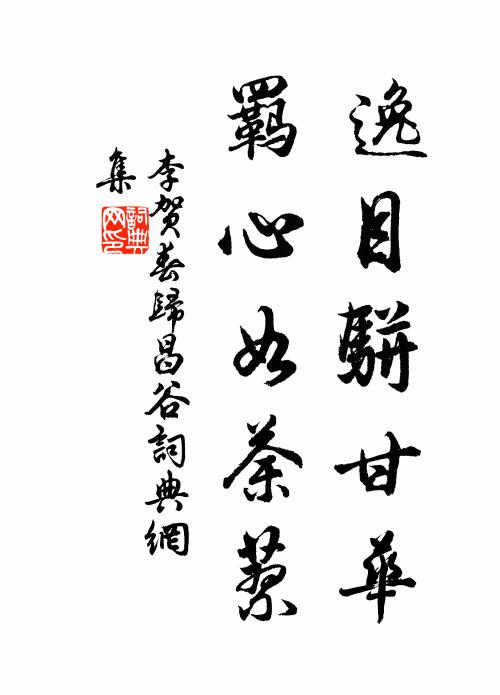 逸目駢甘華
羈心如荼蓼
李賀春歸昌谷詞典網
集
詞典
网印